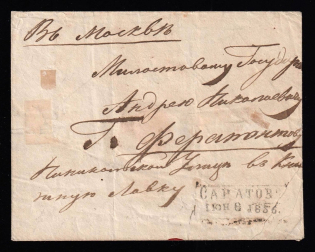 Въ Москвѣ
Милостивому Государю
Андрею Николаевичу
Г. Ферапонтову
Никольской Улицѣ въ Книж
ную Лавку
САРАТОВ
1836